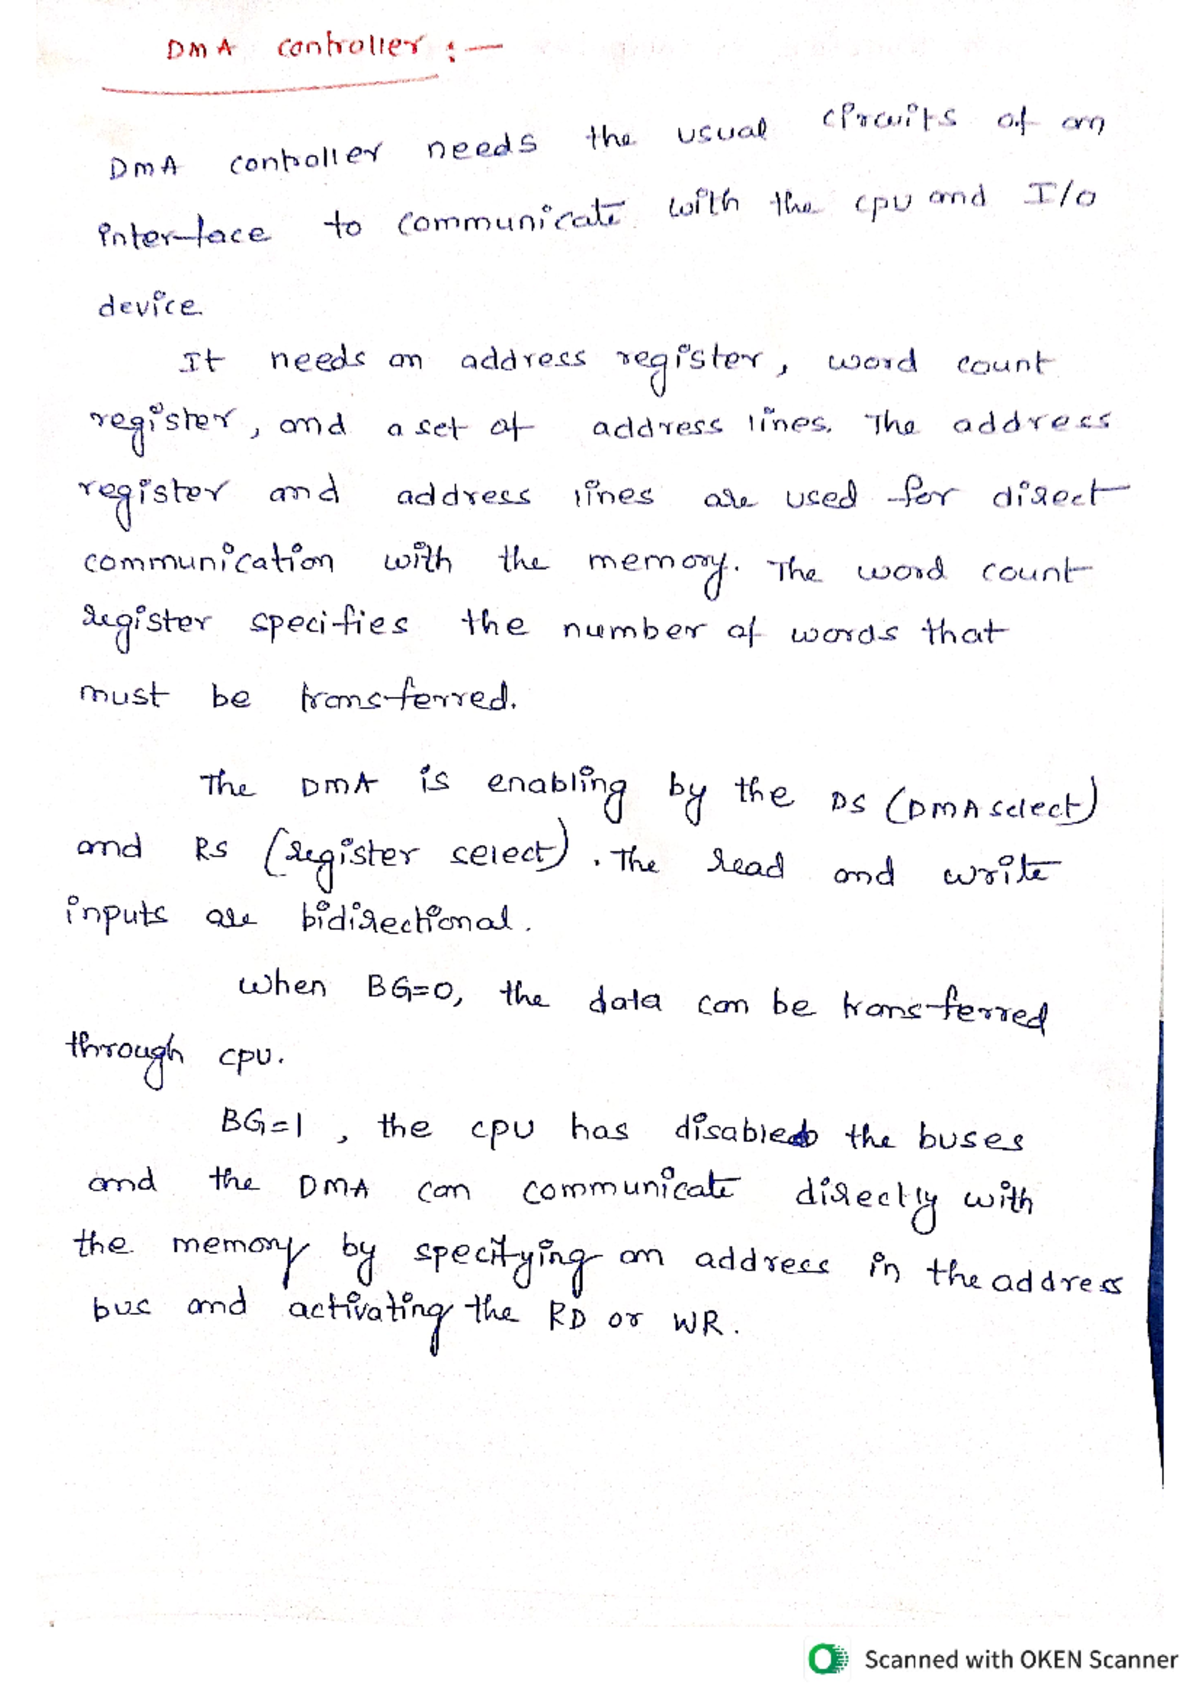 DMA controller :—
DMA controller needs the usual circuits of an
interface to communicate with the cpu and I/O
device.
It needs an address register, word count
register, and a set of address lines. The address
register and address lines are used for direct
communication with the memory. The word count
register specifies the number of words that
must be transferred.
The DMA is enabling by the DS (DMA select)
and RS (register select). The read and write
inputs are bidirectional.
When BG=0, the data can be transferred
through cpu.
BG=1, the cpu has disabled the buses
and the DMA can communicate directly with
the memory by specifying an address in the address
bus and activating the RD or WR.
Scanned with OKEN Scanner